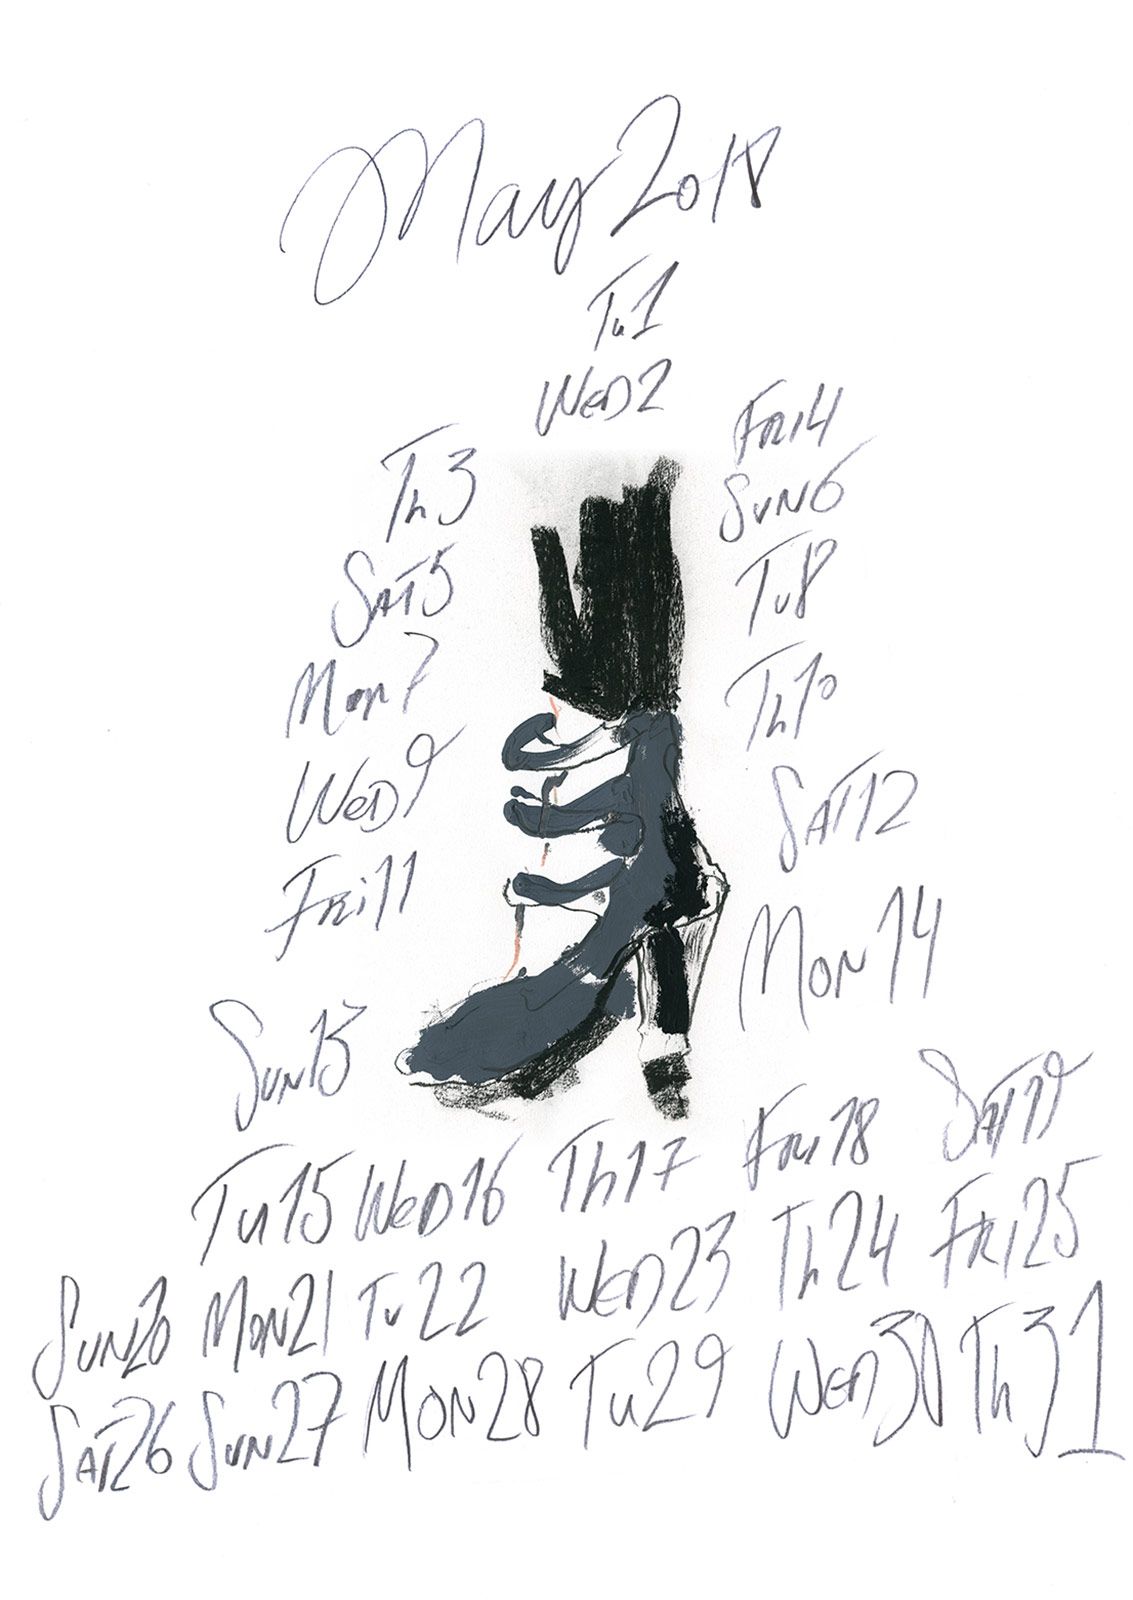 May 2018
Tu1
WED2
Th3
FRI4
SAT5
SUN6
Mon7
Tu8
WeD9
Th10
FRi11
SAT12
Sun13
MON14
Tu15 WeD16 Th17 FRI18 SAT19
SUN20 MON21 Tu22 WED23 Th24 FRI25
SAT26 SUN27 MON28 Tu29 WED30 Th31